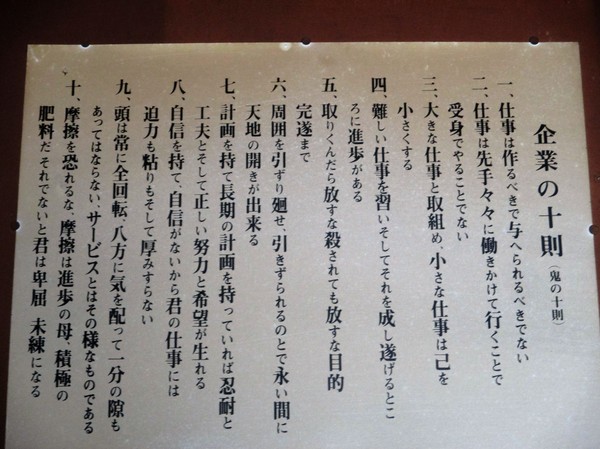 企業の十則（鬼の十則）
一、仕事は作るべきで与へられるべきでない
二、仕事は先手々々に働きかけて行くことで
受身でやることでない
三、大きな仕事と取組め、小さな仕事は己を
小さくする
四、難しい仕事を習いそしてそれを成し遂げるとこ
ろに進歩がある
五、取りくんだら放すな殺されても放すな目的
完遂まで
六、周囲を引ずり廻せ、引きずられるのとで永い間に
天地の開きが出来る
七、計画を持て長期の計画を持っていれば忍耐と
工夫とそして正しい努力と希望が生れる
八、自信を持て、自信がないから君の仕事には
迫力も粘りもそして厚みすらない
九、頭は常に全回転、八方に気を配って一分の隙も
あってはならない、サービスとはその様なものである
十、摩擦を恐れるな、摩擦は進歩の母、積極の
肥料だ それでないと君は卑屈 未練になる